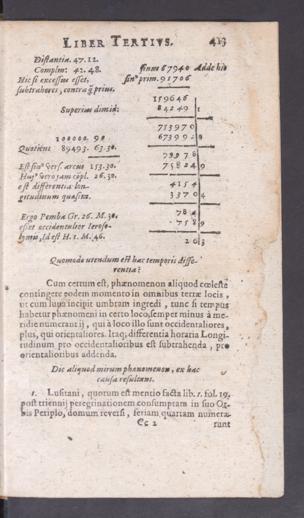 LIBER TERTIVS. 413
Distantia. 47. 12.
Complem: 42. 48. sinus 67940 Adde hic
Hic si excessus esset, sin⁹ prim. 91706
subtraheres, contra q̃ prius.
159646
Superius dimid: 84249 1
713970
100000. 90 673992 8
Quotient 89493. 63. 30.
Est sin⁹ vers. arcus 153. 30. 75824 9
Huj⁹ vero jam cõpl. 26. 30.
est differentia lon- 4154
gitudinum quæsita. 3370 4
784
Ergo Pemba Gr. 26. M. 30. 758 9
esset occidentalior Ieroso-
lymis, Id est H. 1. M. 46. 26 3
Quomodo utendum est hac temporis diffe-
rentia?
Cum certum est, phænomenon aliquod cœleste
contingere eodem momento in omnibus terræ locis,
ut cum luna incipit umbram ingredi, tunc si tempus
habetur phænomeni in certo loco, semper minus à me-
ridie numerant ij, qui à loco illo sunt occidentaliores,
plus, qui orientaliores. Itaq; differentia horaria Longi-
tudinum pro occidentalioribus est subtrahenda, pro
orientalioribus addenda.
Dic aliquod mirum phænomenon, ex hac
causa resultans.
1. Lusitani, quorum est mentio facta lib. 1. fol. 19.
post triennij peregrinationem consumptam in suo Or-
bis Periplo, domum reversi, feriam quartam numera-
Cc 2 runt